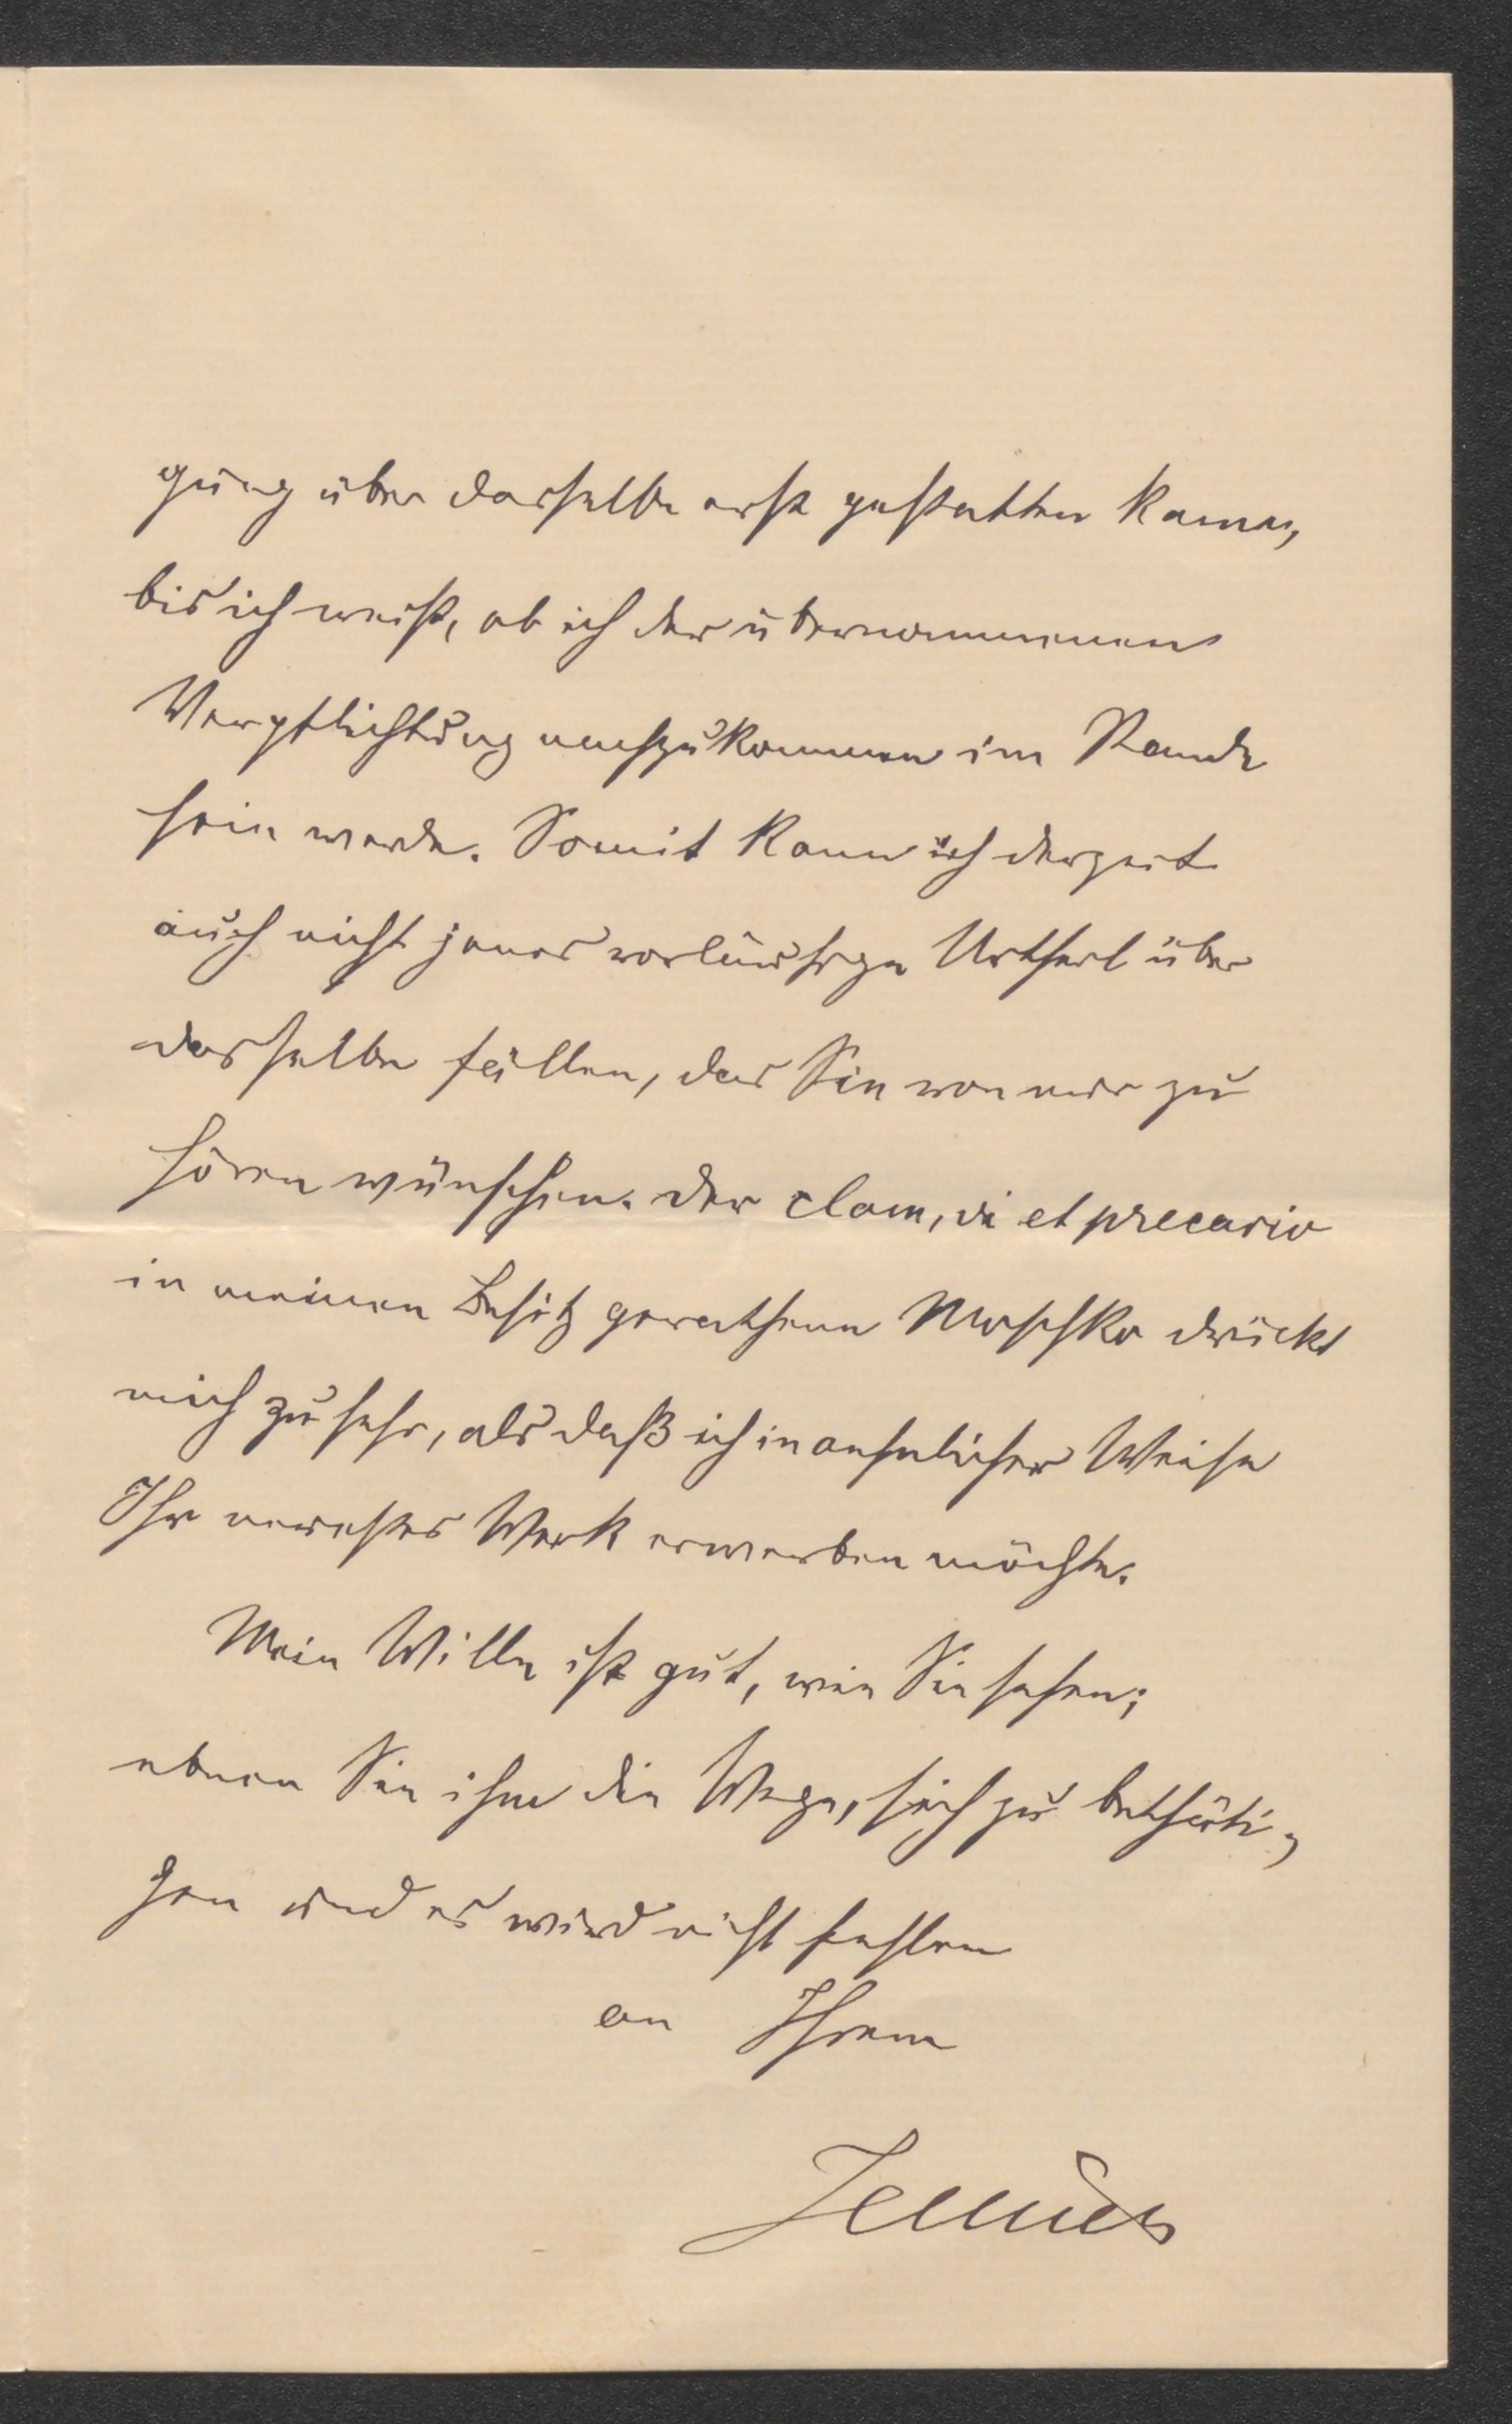 gung über dasselbe erst gestatten kann,
bis ich weiß, ob ich der übernommenen
Verpflichtung nachzukommen im Stande
sein werde. Somit kann ich derzeit
auch nicht jenes vorläufige Urtheil über
dasselbe fällen, das Sie von mir zu
hören wünschen. Der clam, vi et precario
in meinen Besitz gerathene Moschko drückt
mich zu sehr, als daß ich in aehnlicher Weise
Ihr neuestes Werk erwerben möchte.
Mein Wille ist gut, wie Sie sehen;
ebnen Sie ihm die Wege, sich zu bethäti-
gen und es wird nicht fehlen
an Ihrem